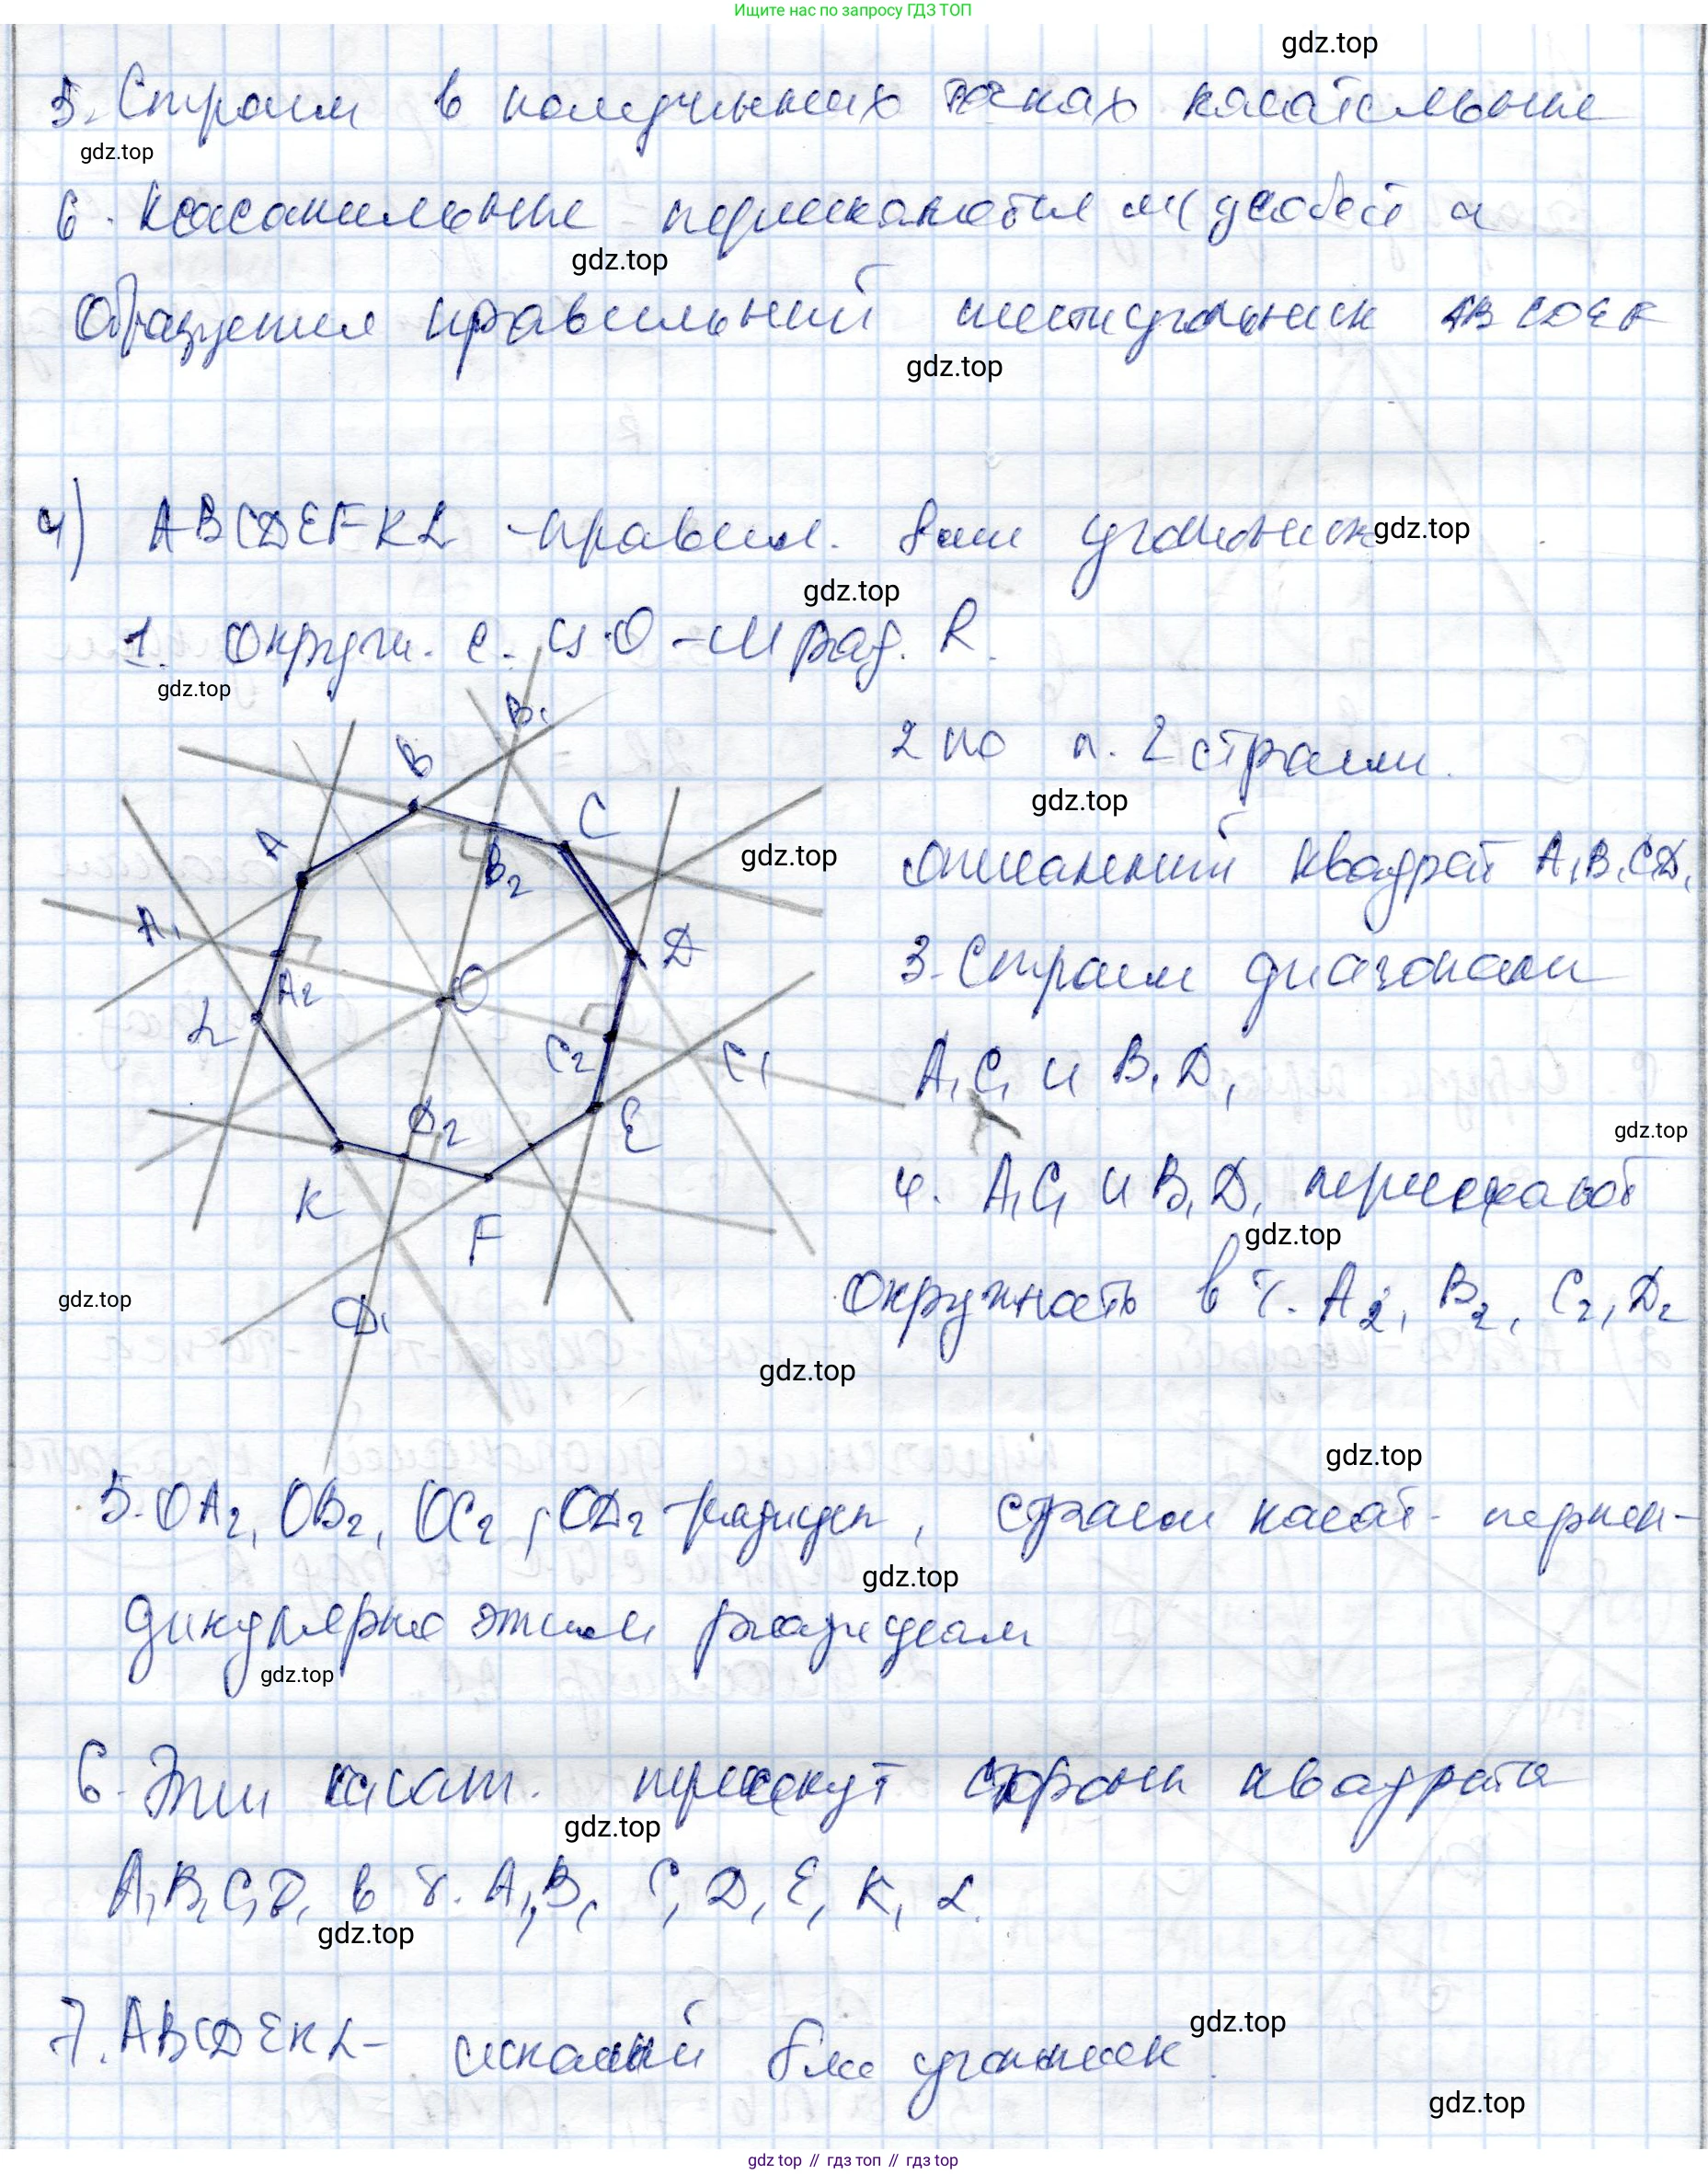 Ищите нас по запросу ГДЗ ТОП
gdz.top
5. Строим в полученных точках касательные
gdz.top
6. Касательные пересекаются м/у собой и
gdz.top
образуется правильный шестиугольник ABCDEF
gdz.top
4) ABCDEFKL - правил. 8ми угольник
gdz.top
gdz.top
1. Окружн. с ц. O и рад. R.
gdz.top
2 по п. 2 строим
gdz.top
описанный квадрат A₁B₁C₁D₁
gdz.top
3. Строим диагонали
A₁C₁ и B₁D₁
gdz.top
4. A₁C₁ и B₁D₁ пересекают
gdz.top
окружность в т. A₂, B₂, C₂, D₂
gdz.top
gdz.top
B₁
B
C
A
B₂
A₁
D
A₂
O
L
C₂
C₁
D₂
E
K
F
D₁
gdz.top
5. OA₂, OB₂, OC₂, OD₂ - радиусы, строим касат. перпен-
gdz.top
дикулярно этим радиусам
gdz.top
6. Эти касат. пересекут стороны квадрата
gdz.top
A₁B₁C₁D₁ в т. A, B, C, D, E, K, L.
gdz.top
7. ABCDEKL - искомый 8ми угольник.
gdz.top
gdz.top
gdz top // гдз топ // гдз top